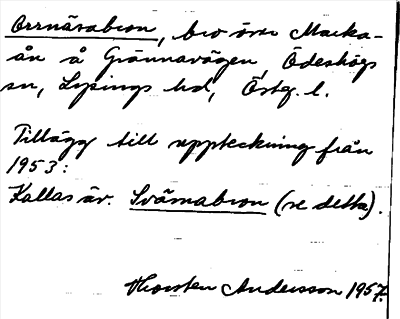 Orrnäsabron, bro över Macka-
ån å Grännavägen, Ödeshögs
sn, Lysings hd, Östg. l.
Tillägg till uppteckning från
1953:
Kallas äv. Svämabron (se detta).
Thorsten Andersson 1957.